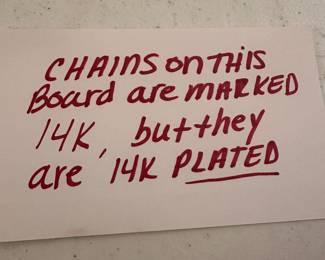 CHAINS on THIS
Board are MARKED
14K, but they
are 14K PLATED